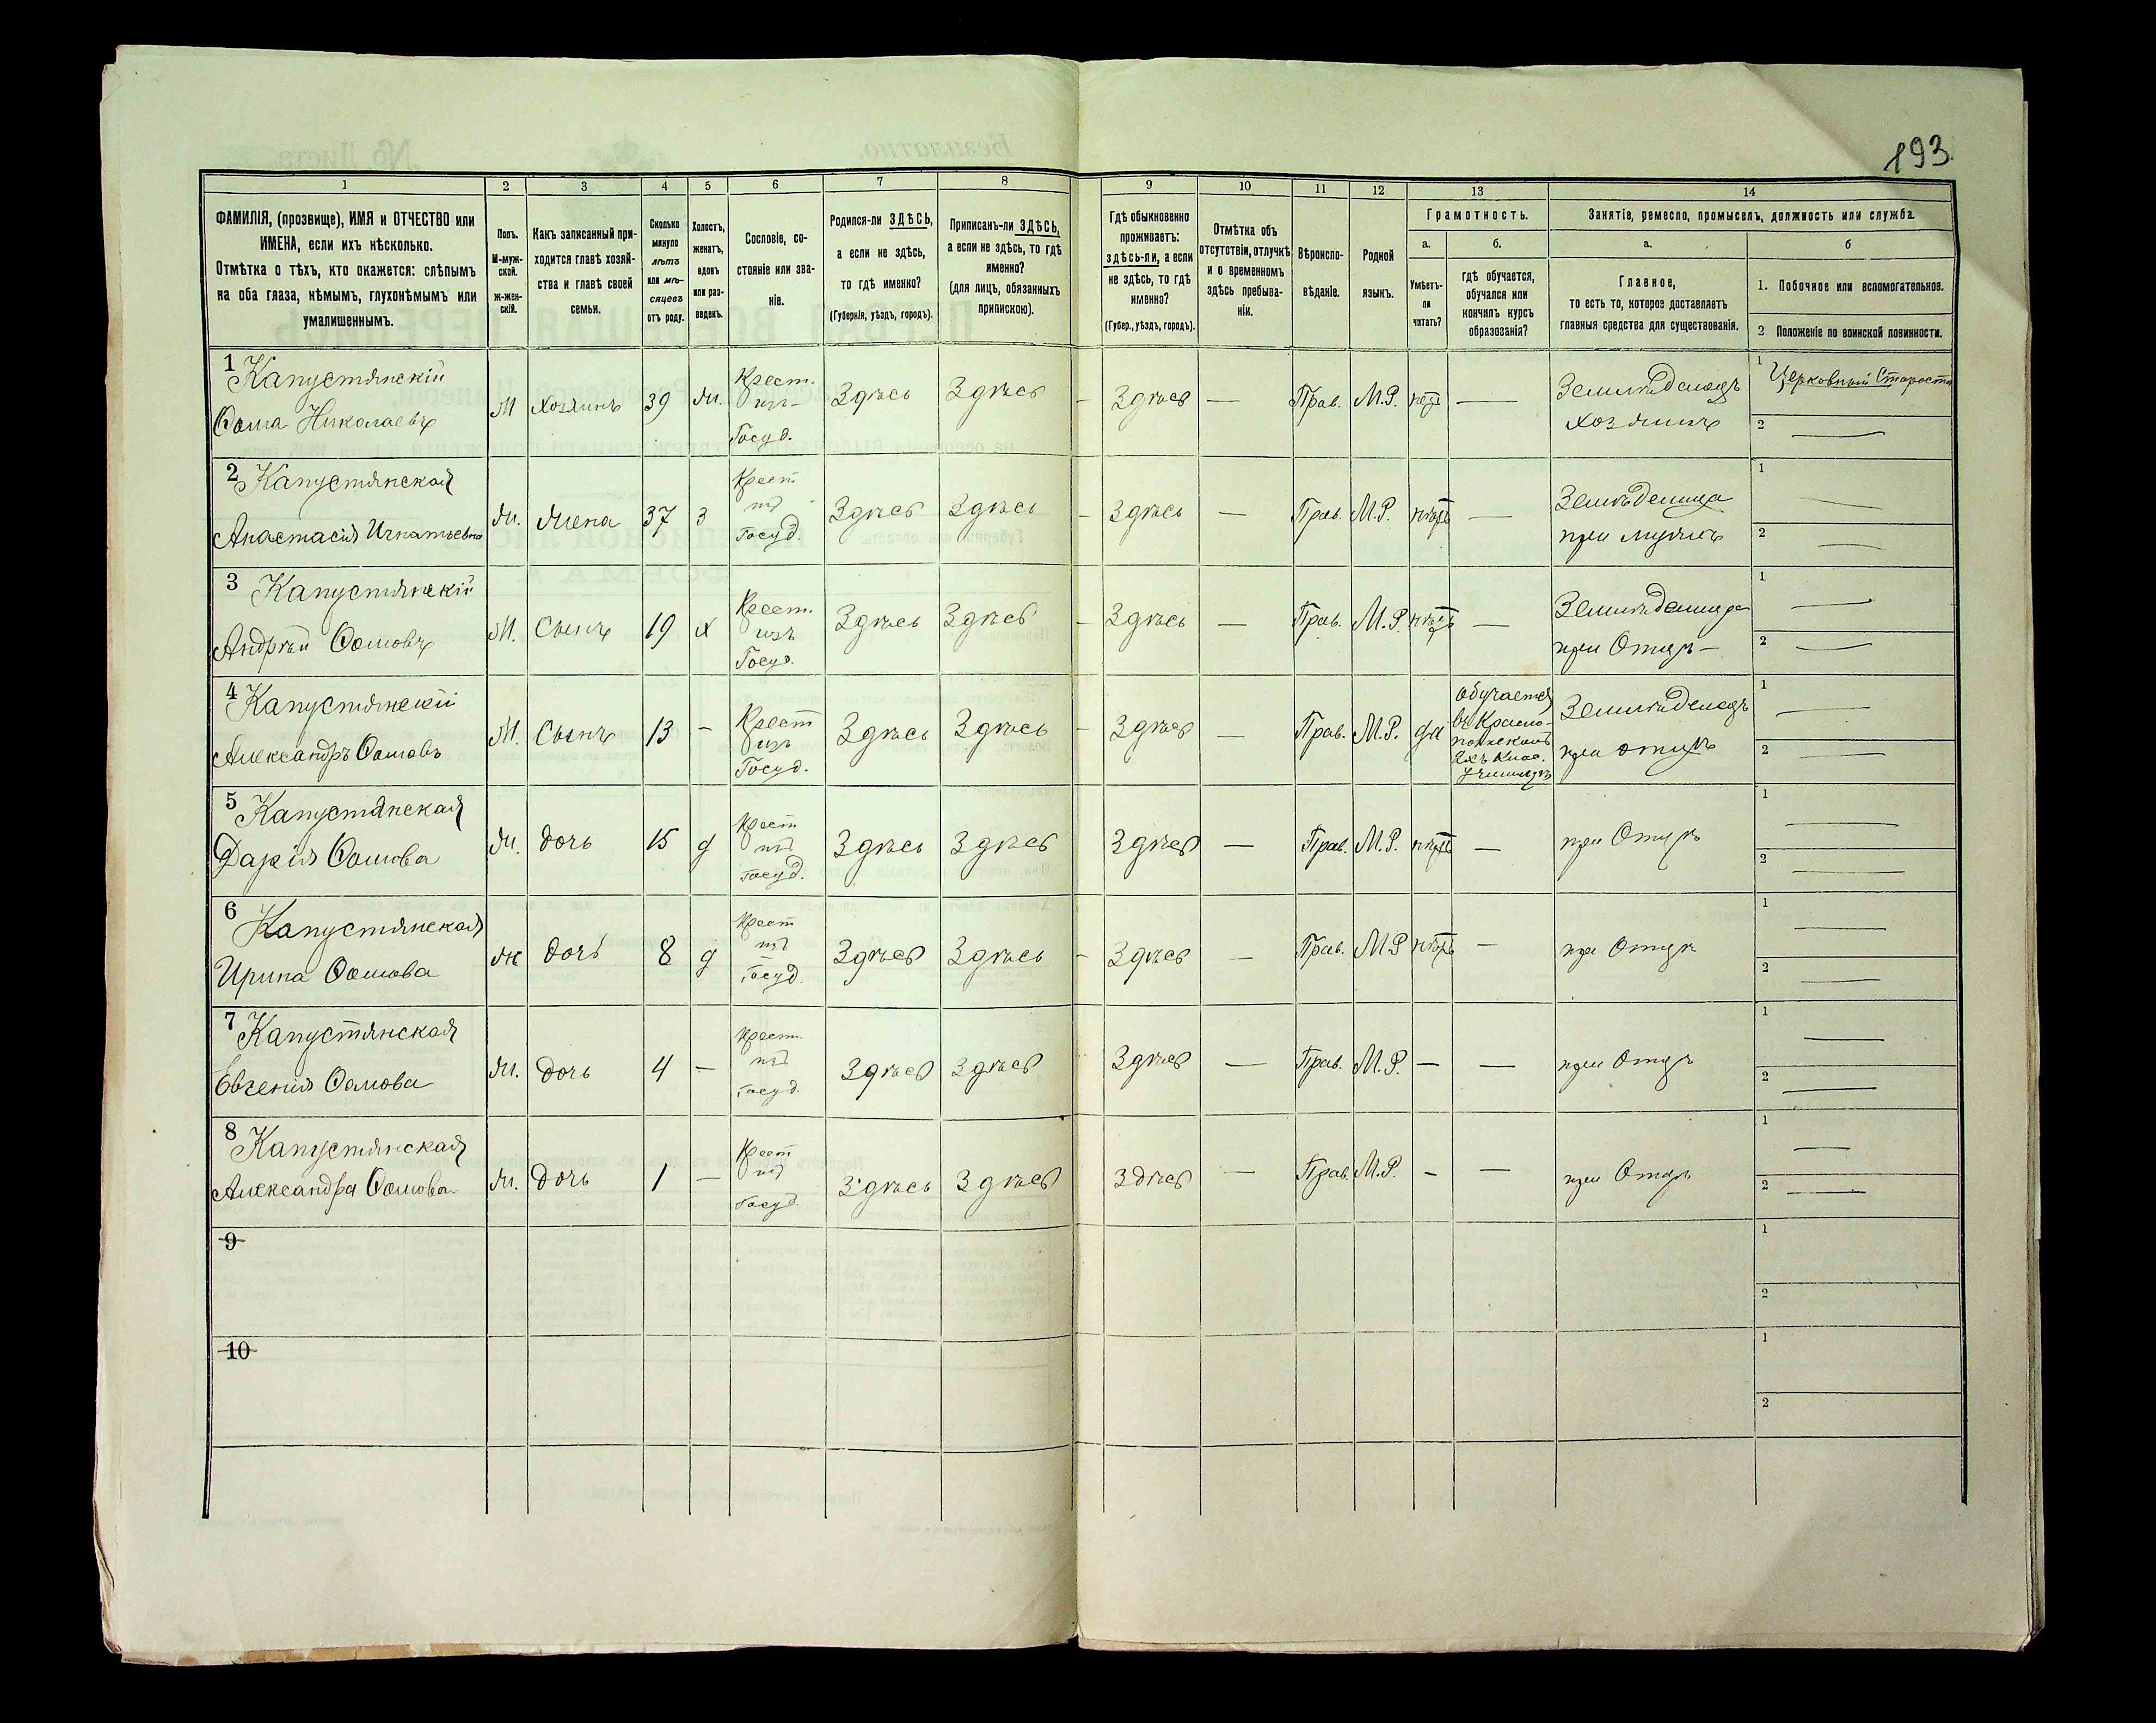 193.
1 2 3 4 5 6 7 8 9 10 11 12 13 14
ФАМИЛІЯ, (прозвище), ИМЯ и ОТЧЕСТВО или
ИМЕНА, если ихъ нѣсколько.
Отмѣтка о тѣхъ, кто окажется: слѣпымъ
на оба глаза, нѣмымъ, глухонѣмымъ или
умалишеннымъ.
Полъ.
М-муж-
ской.
Ж-жен-
скій.
Какъ записанный при-
ходится главѣ хозяй-
ства и главѣ своей
семьи.
Сколько
минуло
лѣтъ
или мѣ-
сяцевъ
отъ роду.
Холостъ,
женатъ,
вдовъ
или раз-
веденъ.
Сословіе, со-
стояніе или зва-
ніе.
Родился-ли ЗДѢСЬ,
а если не здѣсь,
то гдѣ именно?
(Губернія, уѣздъ, городъ).
Приписанъ-ли ЗДѢСЬ,
а если не здѣсь, то гдѣ
именно?
(для лицъ, обязанныхъ
припискою).
Гдѣ обыкновенно
проживаетъ:
здѣсь-ли, а если
не здѣсь, то гдѣ
именно?
(Губер., уѣздъ, городъ).
Отмѣтка объ
отсутствіи, отлучкѣ
и о временномъ
здѣсь пребыва-
ніи.
Вѣроиспо-
вѣданіе.
Родной
языкъ.
Грамотность.
а.
Умѣетъ-
ли
читать?
б.
гдѣ обучается,
обучался или
кончилъ курсъ
образованія?
Занятіе, ремесло, промыселъ, должность или служба.
а.
Главное,
то есть то, которое доставляетъ
главныя средства для существованія.
б
1. Побочное или вспомогательное.
2 Положеніе по воинской повинности.
1 Капустянскій
Ѳома Николаевъ
М
Хозяинъ
39
Ж.
Крест.
изъ
Госуд.
Здѣсь
Здѣсь
Здѣсь
—
Прав.
М.Р.
—
Земледѣлецъ
хозяинъ
1 Церковный Староста
2 —
2 Капустянская
Анастасія Игнатьевна
Ж.
Жена
37
З
Крест
изъ
Госуд.
Здѣсь
Здѣсь
Здѣсь
—
Прав.
М.Р.
нѣтъ
—
при мужѣ
1 —
2 —
3 Капустянскій
Андрѣй Ѳомовъ
М.
Сынъ
19
Х
Крест.
изъ
Госуд.
Здѣсь
Здѣсь
Здѣсь
—
Прав.
М.Р.
нѣтъ
—
при Отцѣ
1 —
2 —
4 Капустянскій
Александръ Ѳомовъ
М.
Сынъ
13
—
Крест
изъ
Госуд.
Здѣсь
Здѣсь
Здѣсь
—
Прав.
М.Р.
да
Обучается
2хъ клас.
училищѣ
Земледѣлецъ
при отцѣ
1 —
2 —
5 Капустянская
Дарія Ѳомова
Ж.
дочь
15
д
Крест
изъ
Госуд.
Здѣсь
Здѣсь
Здѣсь
—
Прав.
М.Р.
нѣтъ
—
при Отцѣ
1 —
2 —
6 Капустянская
Ирина Ѳомова
Ж
дочь
8
д
Крест
изъ
Госуд.
Здѣсь
Здѣсь
Здѣсь
—
Прав.
М.Р
нѣтъ
—
при Отцѣ
1 —
2 —
7 Капустянская
Евгенія Ѳомова
Ж.
Дочь
4
—
Крест.
изъ
Госуд.
Здѣсь
Здѣсь
Здѣсь
—
Прав.
М.Р.
—
—
при Отцѣ
1 —
2 —
8 Капустянская
Александра Ѳомова.
Ж.
Дочь
1
—
Крест
изъ
Госуд.
Здѣсь
Здѣсь
Здѣсь
—
Прав.
М.Р.
-
—
при Отцѣ
1 —
2 —
9
1
2
10
1
2